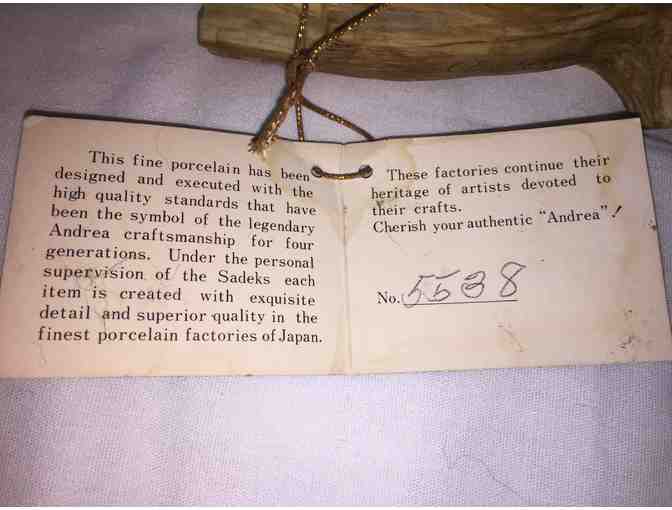 This fine porcelain has been
designed and executed with the
high quality standards that have
been the symbol of the legendary
Andrea craftsmanship for four
generations. Under the personal
supervision of the Sadeks each
item is created with exquisite
detail and superior quality in the
finest porcelain factories of Japan.
These factories continue their
heritage of artists devoted to
their crafts.
Cherish your authentic "Andrea"!
No. 5538